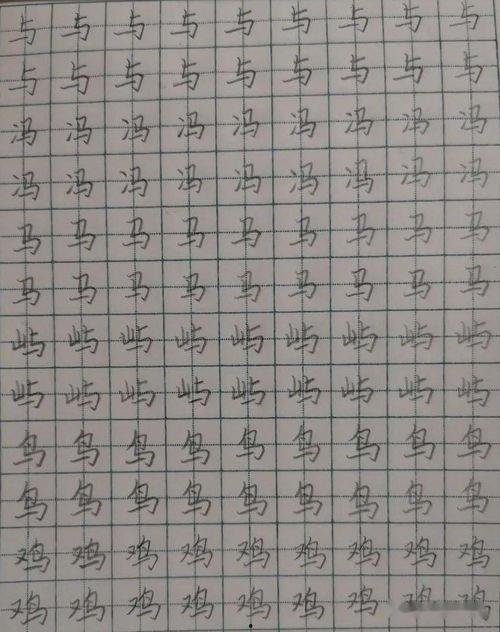 与与与与与与与与与
与与与与与与与与与
冯冯冯冯冯冯冯冯冯
冯冯冯冯冯冯冯冯冯
马马马马马马马马马
马马马马马马马马马
屿屿屿屿屿屿屿屿屿
屿屿屿屿屿屿屿屿屿
鸟鸟鸟鸟鸟鸟鸟鸟鸟
鸟鸟鸟鸟鸟鸟鸟鸟鸟
鸡鸡鸡鸡鸡鸡鸡鸡鸡
鸡鸡鸡鸡鸡鸡鸡鸡鸡